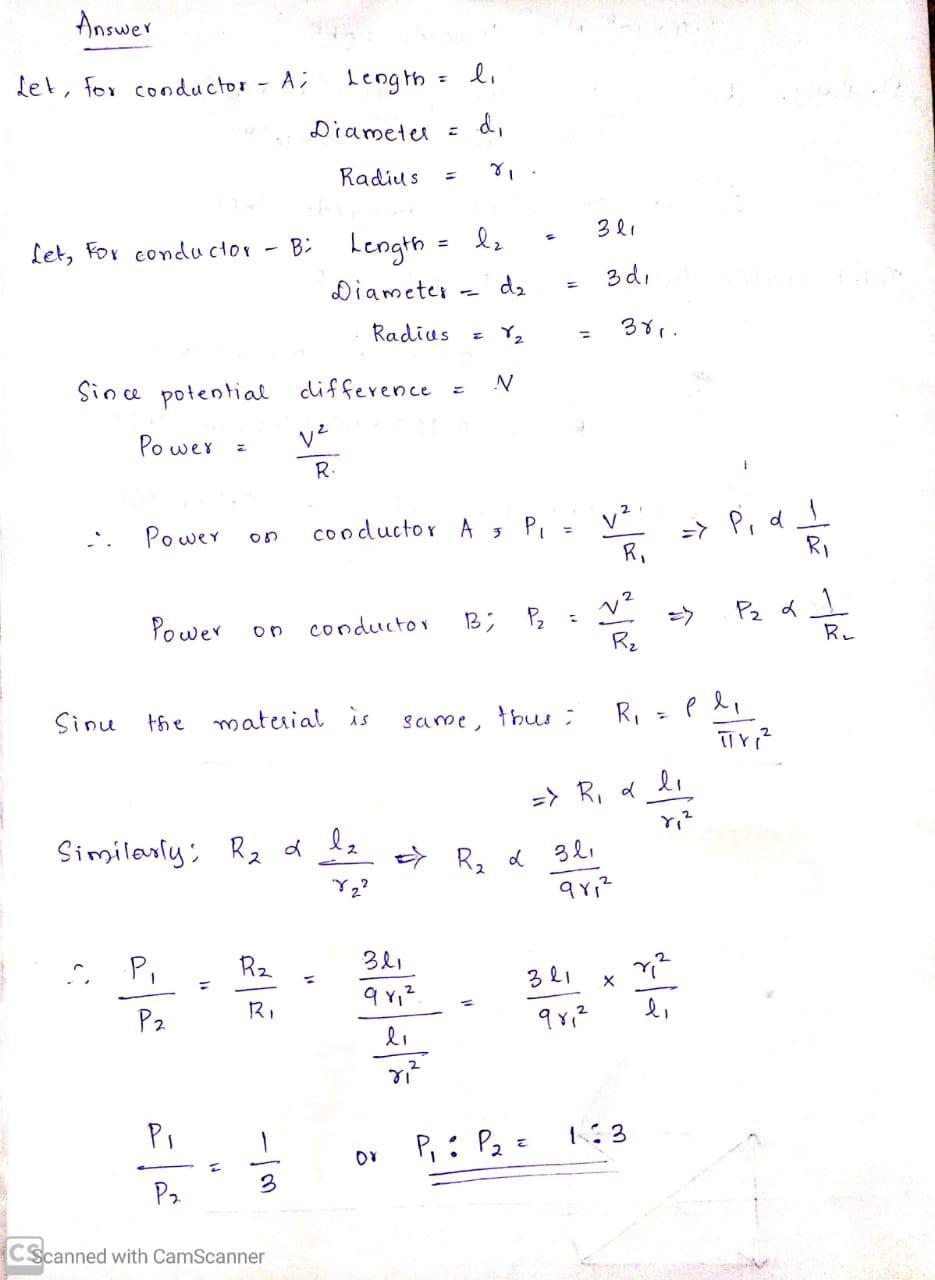 Answer
Let, for conductor - A; Length = l₁
Diameter = d₁
Radius = r₁.
Let, For conductor - B: Length = l₂ = 3l₁
Diameter = d₂ = 3d₁
Radius = r₂ = 3r₁.
Since potential difference = V
Power = V²/R.
∴ Power on conductor A ; P₁ = V²/R₁ => P₁ α 1/R₁
Power on conductor B; P₂ = V²/R₂ => P₂ α 1/R₂
Since the material is same, thus ; R₁ = ρ l₁/πr₁²
=> R₁ α l₁/r₁²
Similarly; R₂ α l₂/r₂² => R₂ α 3l₁/9r₁²
∴ P₁/P₂ = R₂/R₁ = (3l₁/9r₁²)/(l₁/r₁²) = 3l₁/9r₁² × r₁²/l₁
P₁/P₂ = 1/3 or P₁ : P₂ = 1:3
CS Scanned with CamScanner